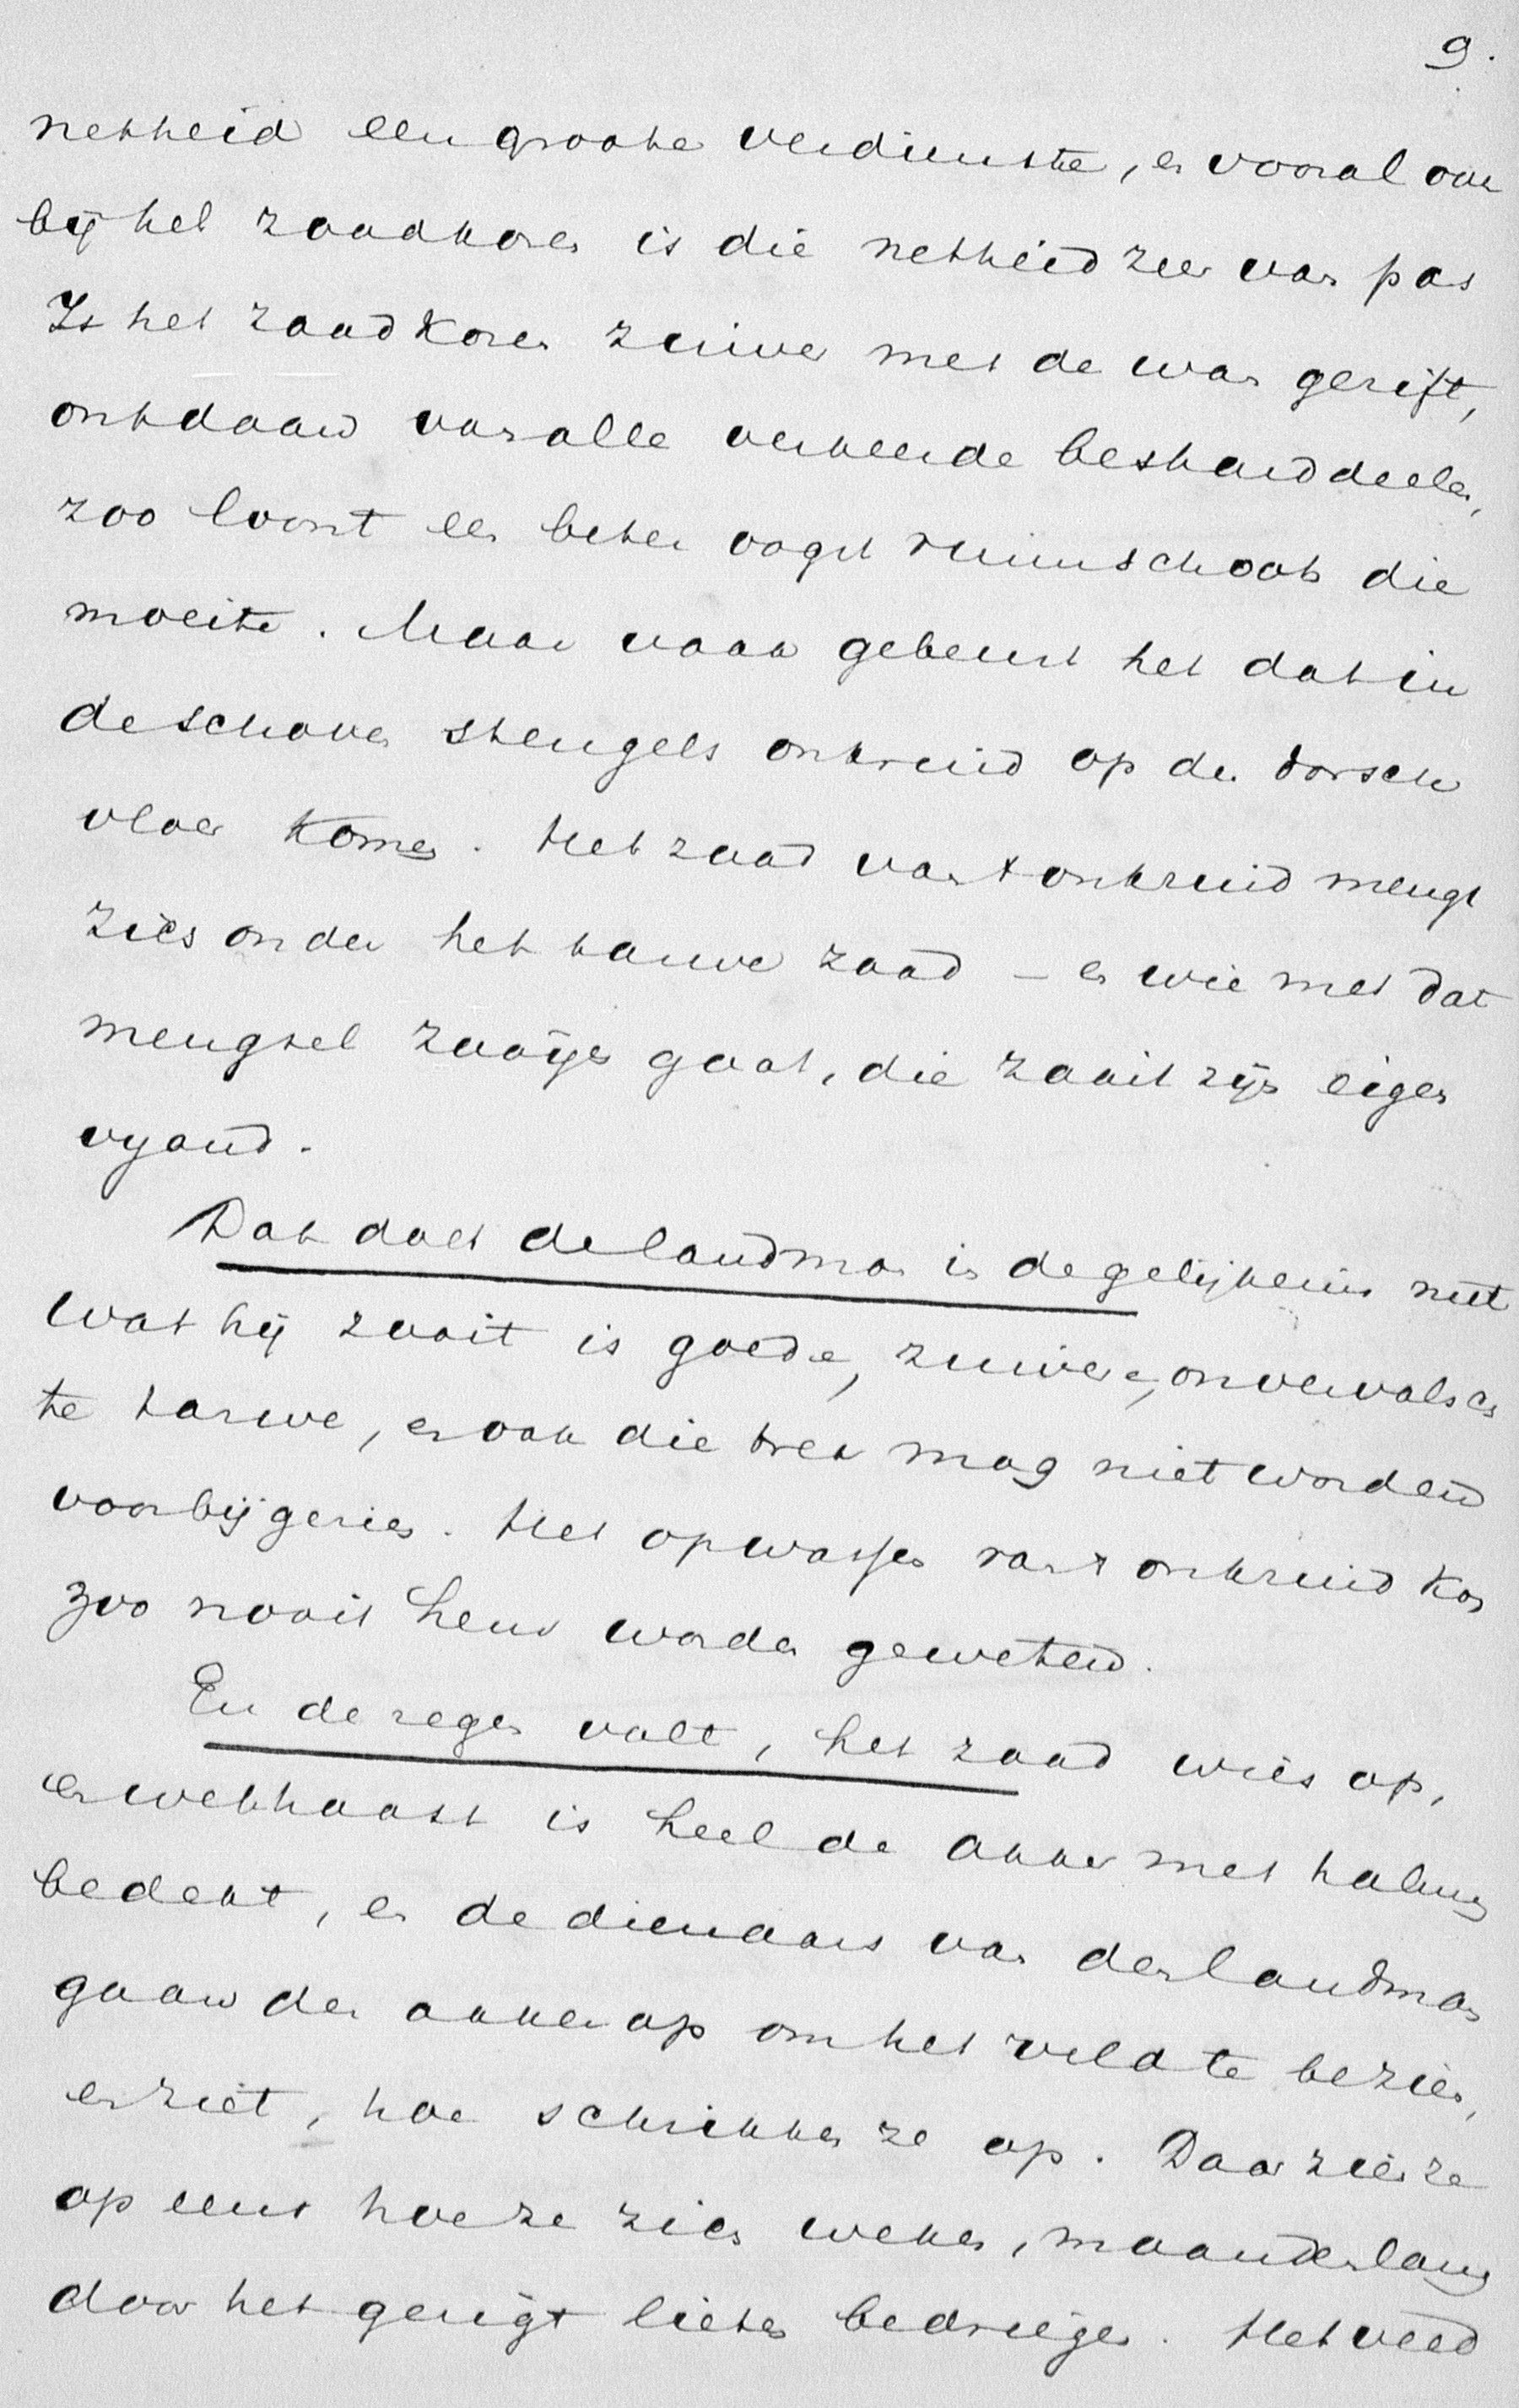 9.
netheid een groote verdienste, en vooral ook
bij het zaadkoren is die netheid zeer van pas
Is het zaadkoren zuiver met de wan gezift,
ontdaan van alle verkeerde bestanddeelen,
zoo loont een beter oogst ruimschoots die
moeite. Maar vaak gebeurt het dat in
de schoven stengels onkruid op den dorsch
vloer komen. Het zaad van 't onkruid mengt
zich onder het tarwe zaad – en wie met dat
mengsel zaaijen gaat, die zaait zijn eigen
vyand.
Dat doet de landman in de gelijkenis niet
Wat hij zaait is goede, zuivere, onvervalsch
te tarwe, en ook die trek mag niet worden
voorbijgezien. Het opwassen van 't onkruid kon
zoo nooit hem worden geweten.
En de regen valt, het zaad wies op,
en welhaast is heel de akker met halmen
bedekt, en de dienaars van den landman
gaan den akker op om het veld te bezien,
en ziet, hoe schrikken ze op. Daar zien ze
op eens hoe ze zich weken, maanden lang
door het gezigt lieten bedriegen. Het veld